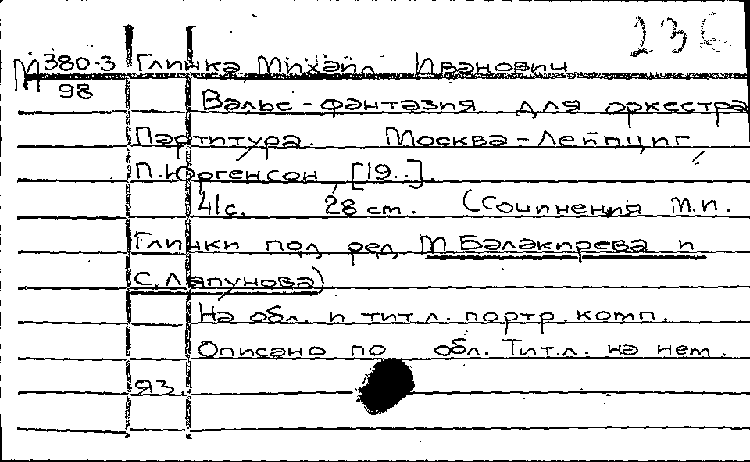 236
М 380-3 Глинка, Михаил Иванович
98
Вальс-фантазия для оркестра
Партитура. Москва-Лейпциг,
П. Юргенсон, [19..].
41с. 28 см. (Сочинения М.И.
Глинки под ред. М. Балакирева и
С. Ляпунова)
На обл. и тит.л. портр. комп.
Описано по обл. Тит.л. на нем.
яз.